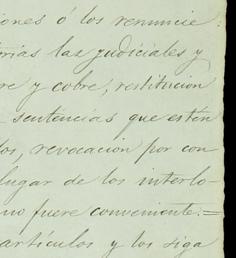 iones ó los renuncie.
rias las judiciales y
re y cobre, restitucion
sentencias que estén
los, revocacion por con
lugar de los interlo-
no fuere conveniente.=
artículos y los siga